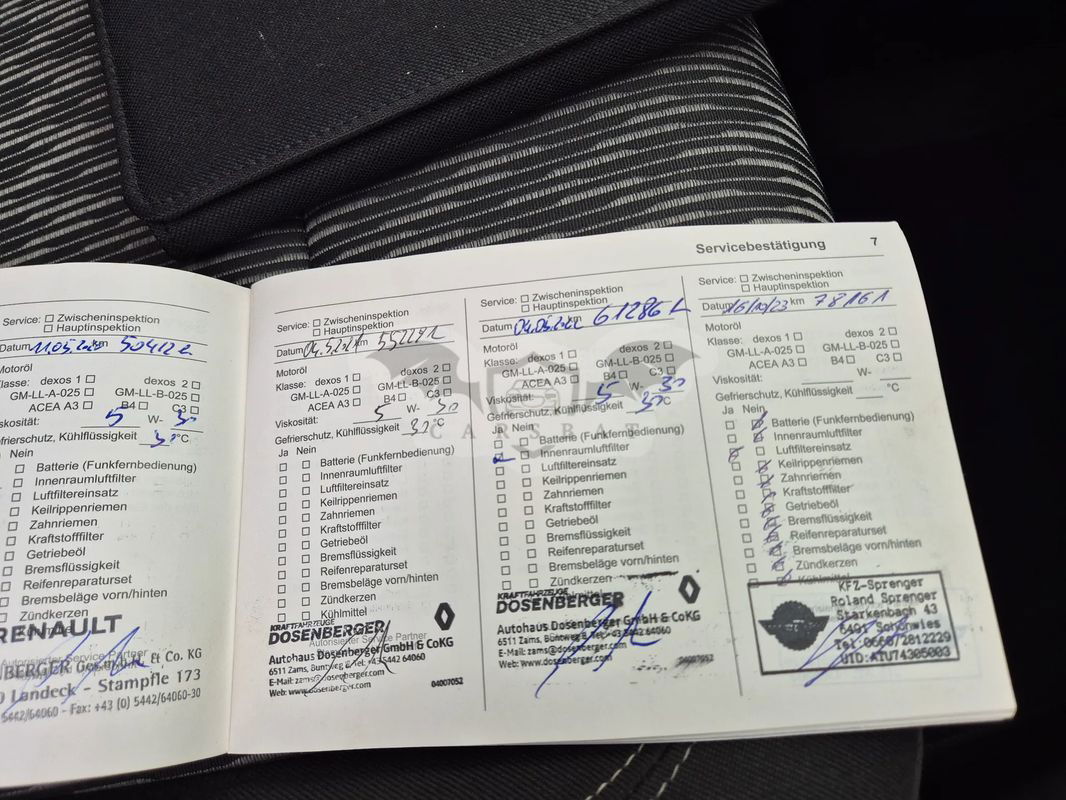 Servicebestätigung 7
Service: ☐ Zwischeninspektion
☐ Hauptinspektion
Datum 11.05. km 50412
Motoröl
Klasse: dexos 1 ☐ dexos 2 ☐
GM-LL-A-025 ☐ GM-LL-B-025 ☐
ACEA A3 ☐ B4 ☐ C3 ☐
Viskosität: 5 W- 30
Gefrierschutz, Kühlflüssigkeit °C
Nein
☐ Batterie (Funkfernbedienung)
☐ Innenraumluftfilter
☐ Luftfiltereinsatz
☐ Keilrippenriemen
☐ Zahnriemen
☐ Kraftstofffilter
☐ Getriebeöl
☐ Bremsflüssigkeit
☐ Reifenreparaturset
☐ Bremsbeläge vorn/hinten
☐ Zündkerzen
RENAULT
Autorisierter Service Partner
& Co. KG
Landeck - Stampfle 173
5442/64060 - Fax: +43 (0) 5442/64060-30
Service: ☐ Zwischeninspektion
☐ Hauptinspektion
Datum 04.5.2021 km 55229
Motoröl
Klasse: dexos 1 ☐ dexos 2 ☐
GM-LL-A-025 ☐ GM-LL-B-025 ☐
ACEA A3 ☐ B4 ☐ C3 ☐
Viskosität: 5 W- 30
Gefrierschutz, Kühlflüssigkeit °C
Ja Nein
☐ ☐ Batterie (Funkfernbedienung)
☐ ☐ Innenraumluftfilter
☐ ☐ Luftfiltereinsatz
☐ ☐ Keilrippenriemen
☐ ☐ Zahnriemen
☐ ☐ Kraftstofffilter
☐ ☐ Getriebeöl
☐ ☐ Bremsflüssigkeit
☐ ☐ Reifenreparaturset
☐ ☐ Bremsbeläge vorn/hinten
☐ ☐ Zündkerzen
☐ ☐ Kühlmittel
KRAFTFAHRZEUGE
DOSENBERGER
Autorisierter Service Partner
Autohaus Dosenberger GmbH & CoKG
6511 Zams, Buntweg 8, Tel.: +43 5442 64060
E-Mail: zams@dosenberger.com
Web: www.dosenberger.com 04007052
Service: ☐ Zwischeninspektion
☐ Hauptinspektion
Datum 04.05.2022 km 61286
Motoröl
Klasse: dexos 1 ☐ dexos 2 ☐
GM-LL-A-025 ☐ GM-LL-B-025 ☐
ACEA A3 ☐ B4 ☐ C3 ☐
Viskosität: 5 W- 30
Gefrierschutz, Kühlflüssigkeit °C
Ja Nein
☐ ☐ Batterie (Funkfernbedienung)
☐ ☐ Innenraumluftfilter
☐ ☐ Luftfiltereinsatz
☐ ☐ Keilrippenriemen
☐ ☐ Zahnriemen
☐ ☐ Kraftstofffilter
☐ ☐ Getriebeöl
☐ ☐ Bremsflüssigkeit
☐ ☐ Reifenreparaturset
☐ ☐ Bremsbeläge vorn/hinten
☐ ☐ Zündkerzen
KRAFTFAHRZEUGE
DOSENBERGER
Autohaus Dosenberger GmbH & CoKG
6511 Zams, Buntweg 8, Tel.: +43 5442 64060
E-Mail: zams@dosenberger.com
Web: www.dosenberger.com 04007052
Service: ☐ Zwischeninspektion
☐ Hauptinspektion
Datum 16/10/23 km 78161
Motoröl
Klasse: dexos 1 ☐ dexos 2 ☐
GM-LL-A-025 ☐ GM-LL-B-025 ☐
ACEA A3 ☐ B4 ☐ C3 ☐
Viskosität: W-
Gefrierschutz, Kühlflüssigkeit °C
Ja Nein
Batterie (Funkfernbedienung)
Innenraumluftfilter
Luftfiltereinsatz
Keilrippenriemen
Zahnriemen
Kraftstofffilter
Getriebeöl
Bremsflüssigkeit
Reifenreparaturset
Bremsbeläge vorn/hinten
Zündkerzen
Kühlmittel
KFZ-Sprenger
Roland Sprenger
Starkenbach 43
6491 Schönwies
Tel:066072812229
UID:ATU74305003
CARSBAT